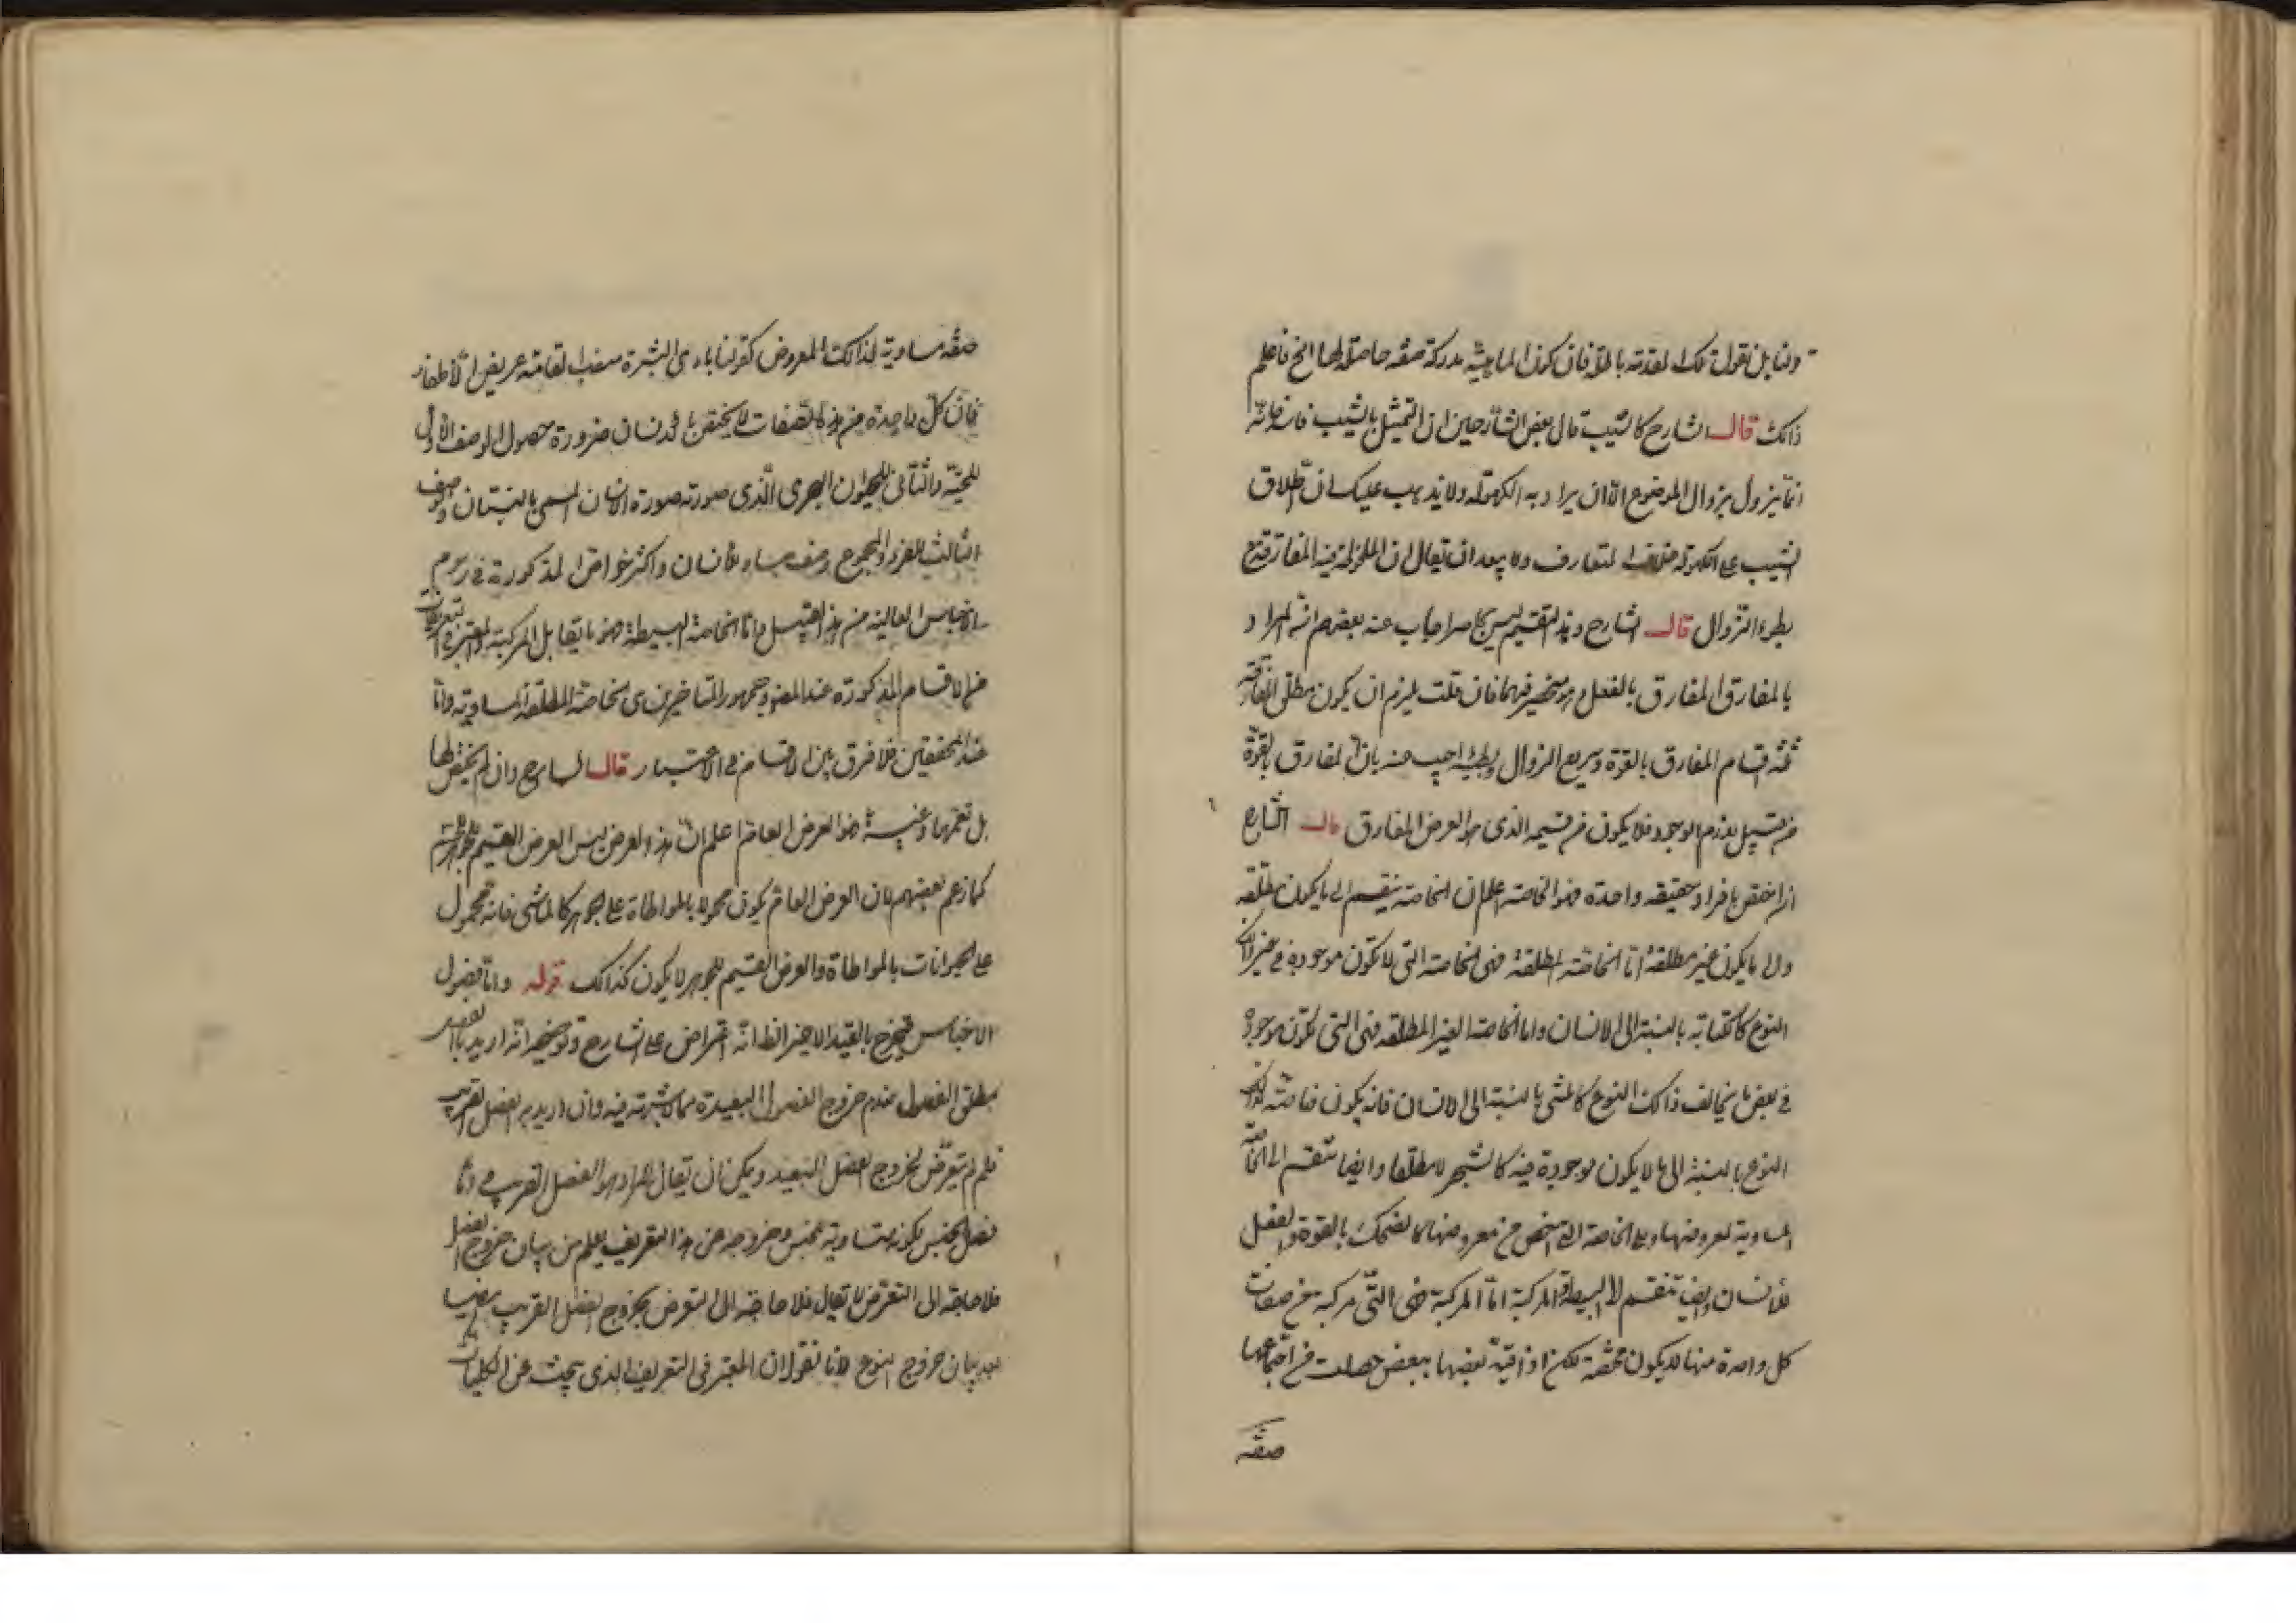 ولنا بل نقول تلك المقدمة باطلة فان كون الماهية مدركة صفة حاصلة لها الخ فاعلم
ذلك قال الشارح كالشيب قال بعض الشارحين ان التمثيل بالشيب فاسد لانه
انما يزول بزوال الموضوع الا ان يراد به الكهولة ولا يذهب عليك ان اطلاق
الشيب على الكهولة خلاف المتعارف ولا يبعد ان يقال ان الملزومية المفارقة مع
بطوء الزوال قال الشارح وهذا التقسيم ليس بحاصر اجاب عنه بعضهم انه المراد
بالمفارق المفارق بالفعل وهو منحصر فيهما فان قلت يلزم ان يكون مطلق المفارق
ثلثة اقسام المفارق بالقوة وسريع الزوال وبطيئه اجيب عنه بان المفارق بالقوة
من قبيل لازم الوجود فلا يكون من قسيمه الذي هو العرض المفارق قال الشارح
ان اختص بافراد حقيقة واحدة فهو الخاصة اعلم ان الخاصة ينقسم الى ما يكون مطلقة
والى ما يكون غير مطلقة اما الخاصة المطلقة فهي الخاصة التي لا تكون موجودة في غير ذلك
النوع كالكتابة بالنسبة الى الانسان واما الخاصة الغير المطلقة فهي التي تكون موجودة
في بعض ما يخالف ذلك النوع كالمشي بالنسبة الى الانسان فانه يكون خاصة لذلك
النوع بالنسبة الى ما لا يكون موجودة فيه كالشجر لا مطلقا وايضا تنقسم الى الخاصة
المساوية لمعروضها والى الخاصة التي اخص من معروضها كالضحك بالقوة والفعل
للانسان وايضا تنقسم الى البسيطة والمركبة اما المركبة فهي التي مركبة من صفات
كل واحدة منها لا يكون مختصة لكن اذا قيد بعضها ببعض حصلت من اجتماعها
صفة
صفة مساوية لذلك المعروض كقولنا بادي البشرة منتصب القامة عريض الاظفار
فان كل واحدة من هذه الصفات لا يختص بالانسان ضرورة حصول الوصف الاول
للحية والثاني للحيوان البحري الذي صورته صورة الانسان المسمى بالنسناس والوصف
الثالث للغير والمجموع وصف مساو للانسان واكثر خواص المذكورة في رسوم
الاجناس العالية من هذا القبيل واما الخاصة البسيطة فهو ما يقابل المركبة والمعتبر في التعريفات
من الاقسام المذكورة عند المص وجمهور المتاخرين هي الخاصة المطلقة المساوية واما
عند المحققين فلا فرق بين الاقسام في الاعتبار قال الشارح وان لم يختص بها
بل تعمها وغيرها فهو العرض العام اعلم ان هذا العرض ليس العرض القسيم للجوهر
كما زعم بعضهم لان العرض العام يكون محمولا بالمواطاة على جوهر كالماشي فانه محمول
على الحيوانات بالمواطاة والعرض القسيم للجوهر لا يكون كذلك قوله واما فصول
الاجناس فيخرج بالقيد الاخير الظ انه اعتراض على الشارح وتوضيحه انه اريد بالفصل
مطلق الفصول عدم خروج الفصول البعيدة مما لا شبهة فيه وان اريد به الفصل القريب
فلم لم يتعرض لخروج الفصل البعيد ويمكن ان يقال المراد هو الفصل القريب واما
فصل الجنس يكونه مساوية للجنس وخروجه عن هذا التعريف يعلم من بيان خروج الفصل
فلا حاجة الى التعرض لا يقال فلا حاجة الى التعرض بخروج الفصل القريب ايضا
بعد بيان خروج النوع لانا نقول ان المعتبر في التعريف الذي يبحث عن الكليات